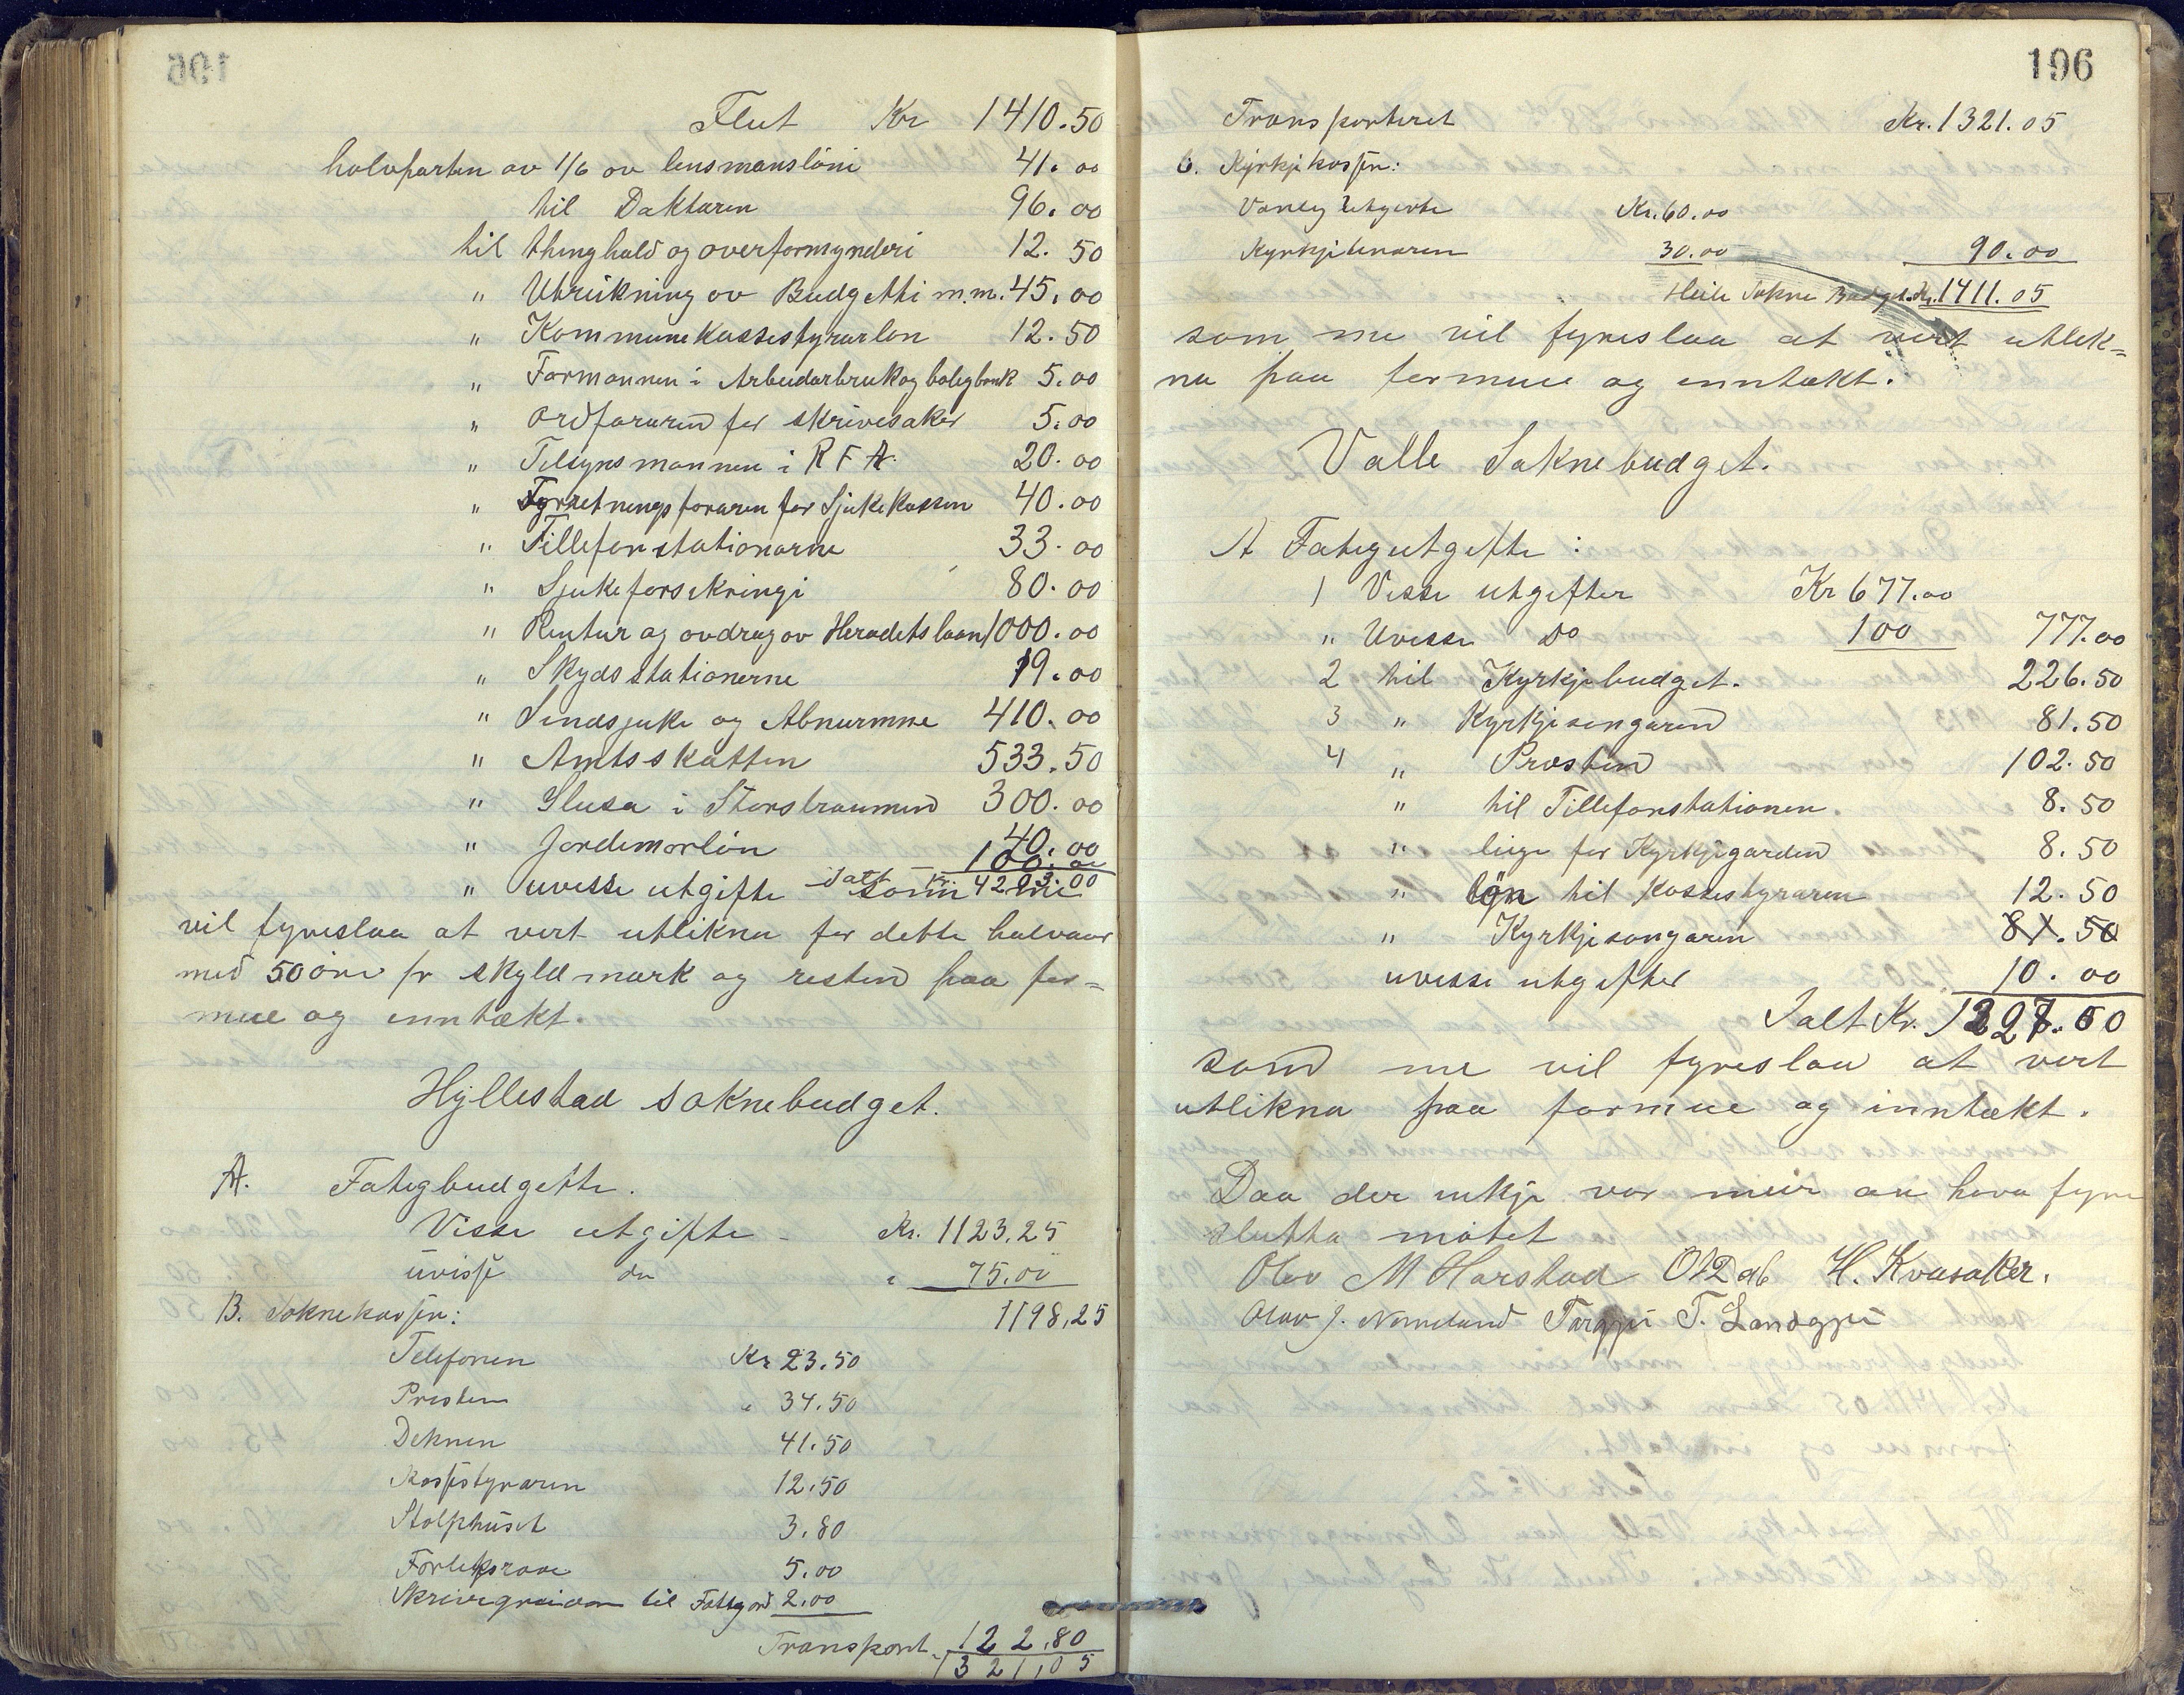 Flut Kr 1410.50
halvparten av 1/6 av lensmanslöni 41.00
til Daktaren 96.00
til thinghald og overformynderi 12.50
" Utrekning av Budgetti m.m. 45.00
" Kommunekassestyrarlon 12.50
" Formannen i Arbeidarbruk og boligbank 5.00
" Ordføraren for skrivesaker 5.00
" Tilsynsmannen i R F A. 20.00
" Fyrretningsføraren for Sjukekassen 40.00
" Tillefonstationarne 33.00
" Sjukeforsekringi 80.00
" Rentur og avdrag av Heradets laan 1000.00
" Skydsstationerne 19.00
" Sindsjuke og Abnurmme 410.00
" Amtsskatten 533.50
" Slusa i Storstraumen 300.00
" Jordemorlön 40.00
100.00
" uvisse utgifte Ialt Kr. 4203.00 som me
vil fyreslaa at vert utlikna for dette halvaar
med 50 öre pr skyldmark og resten paa for=
mue og inntækt.
Hyllestad soknebudget.
A. Fatigbudgette.
Visse utgifte - Kr. 1123,25
uvisse do " 75.00
B. Soknekassen: 1198,25
Telefonen Kr 23.50
Presten " 34.50
Deknen 41.50
Kassestyraren 12.50
Stolphuset 3.80
Forliksraae 5.00
Skrivegreidor til Fattigord 2.00
Transport. 122.80
1321,05
196
Transporteret Kr. 1321.05
C. Kyrkjekassen:
Vanleg Utgivte Kr. 60.00
Kyrkjetenaren 30.00 90.00
Heile Sokne Budget Kr. 1411.05
som me vil fyreslaa at vert utlik=
na paa formue og inntækt.
Valle Soknebudget.
A Fatigutgifte :
1 Visse utgifter Kr 677.00
" Uvisse Do 100 777.00
2 til Kyrkjebudget. 226.50
3 " Kyrkjesongaren 81.50
4 " Prosten 102.50
" til Tillefonstationen. 8.50
" leige for Kyrkjegarden 8.50
" løn til Kassestyraren 12.50
" Kyrkjesongaren 81.50
uvisse utgifter 10.00
Ialt Kr. 1227.00
som me vil fyreslaa at vert
utlikna paa formue og inntækt.
Daa der inkje var meir an hava fyre
slutta mötet
Olav M Harstad O R Dal H. Kvasaker.
Olav J. Nomeland Targjei T. Landgjei